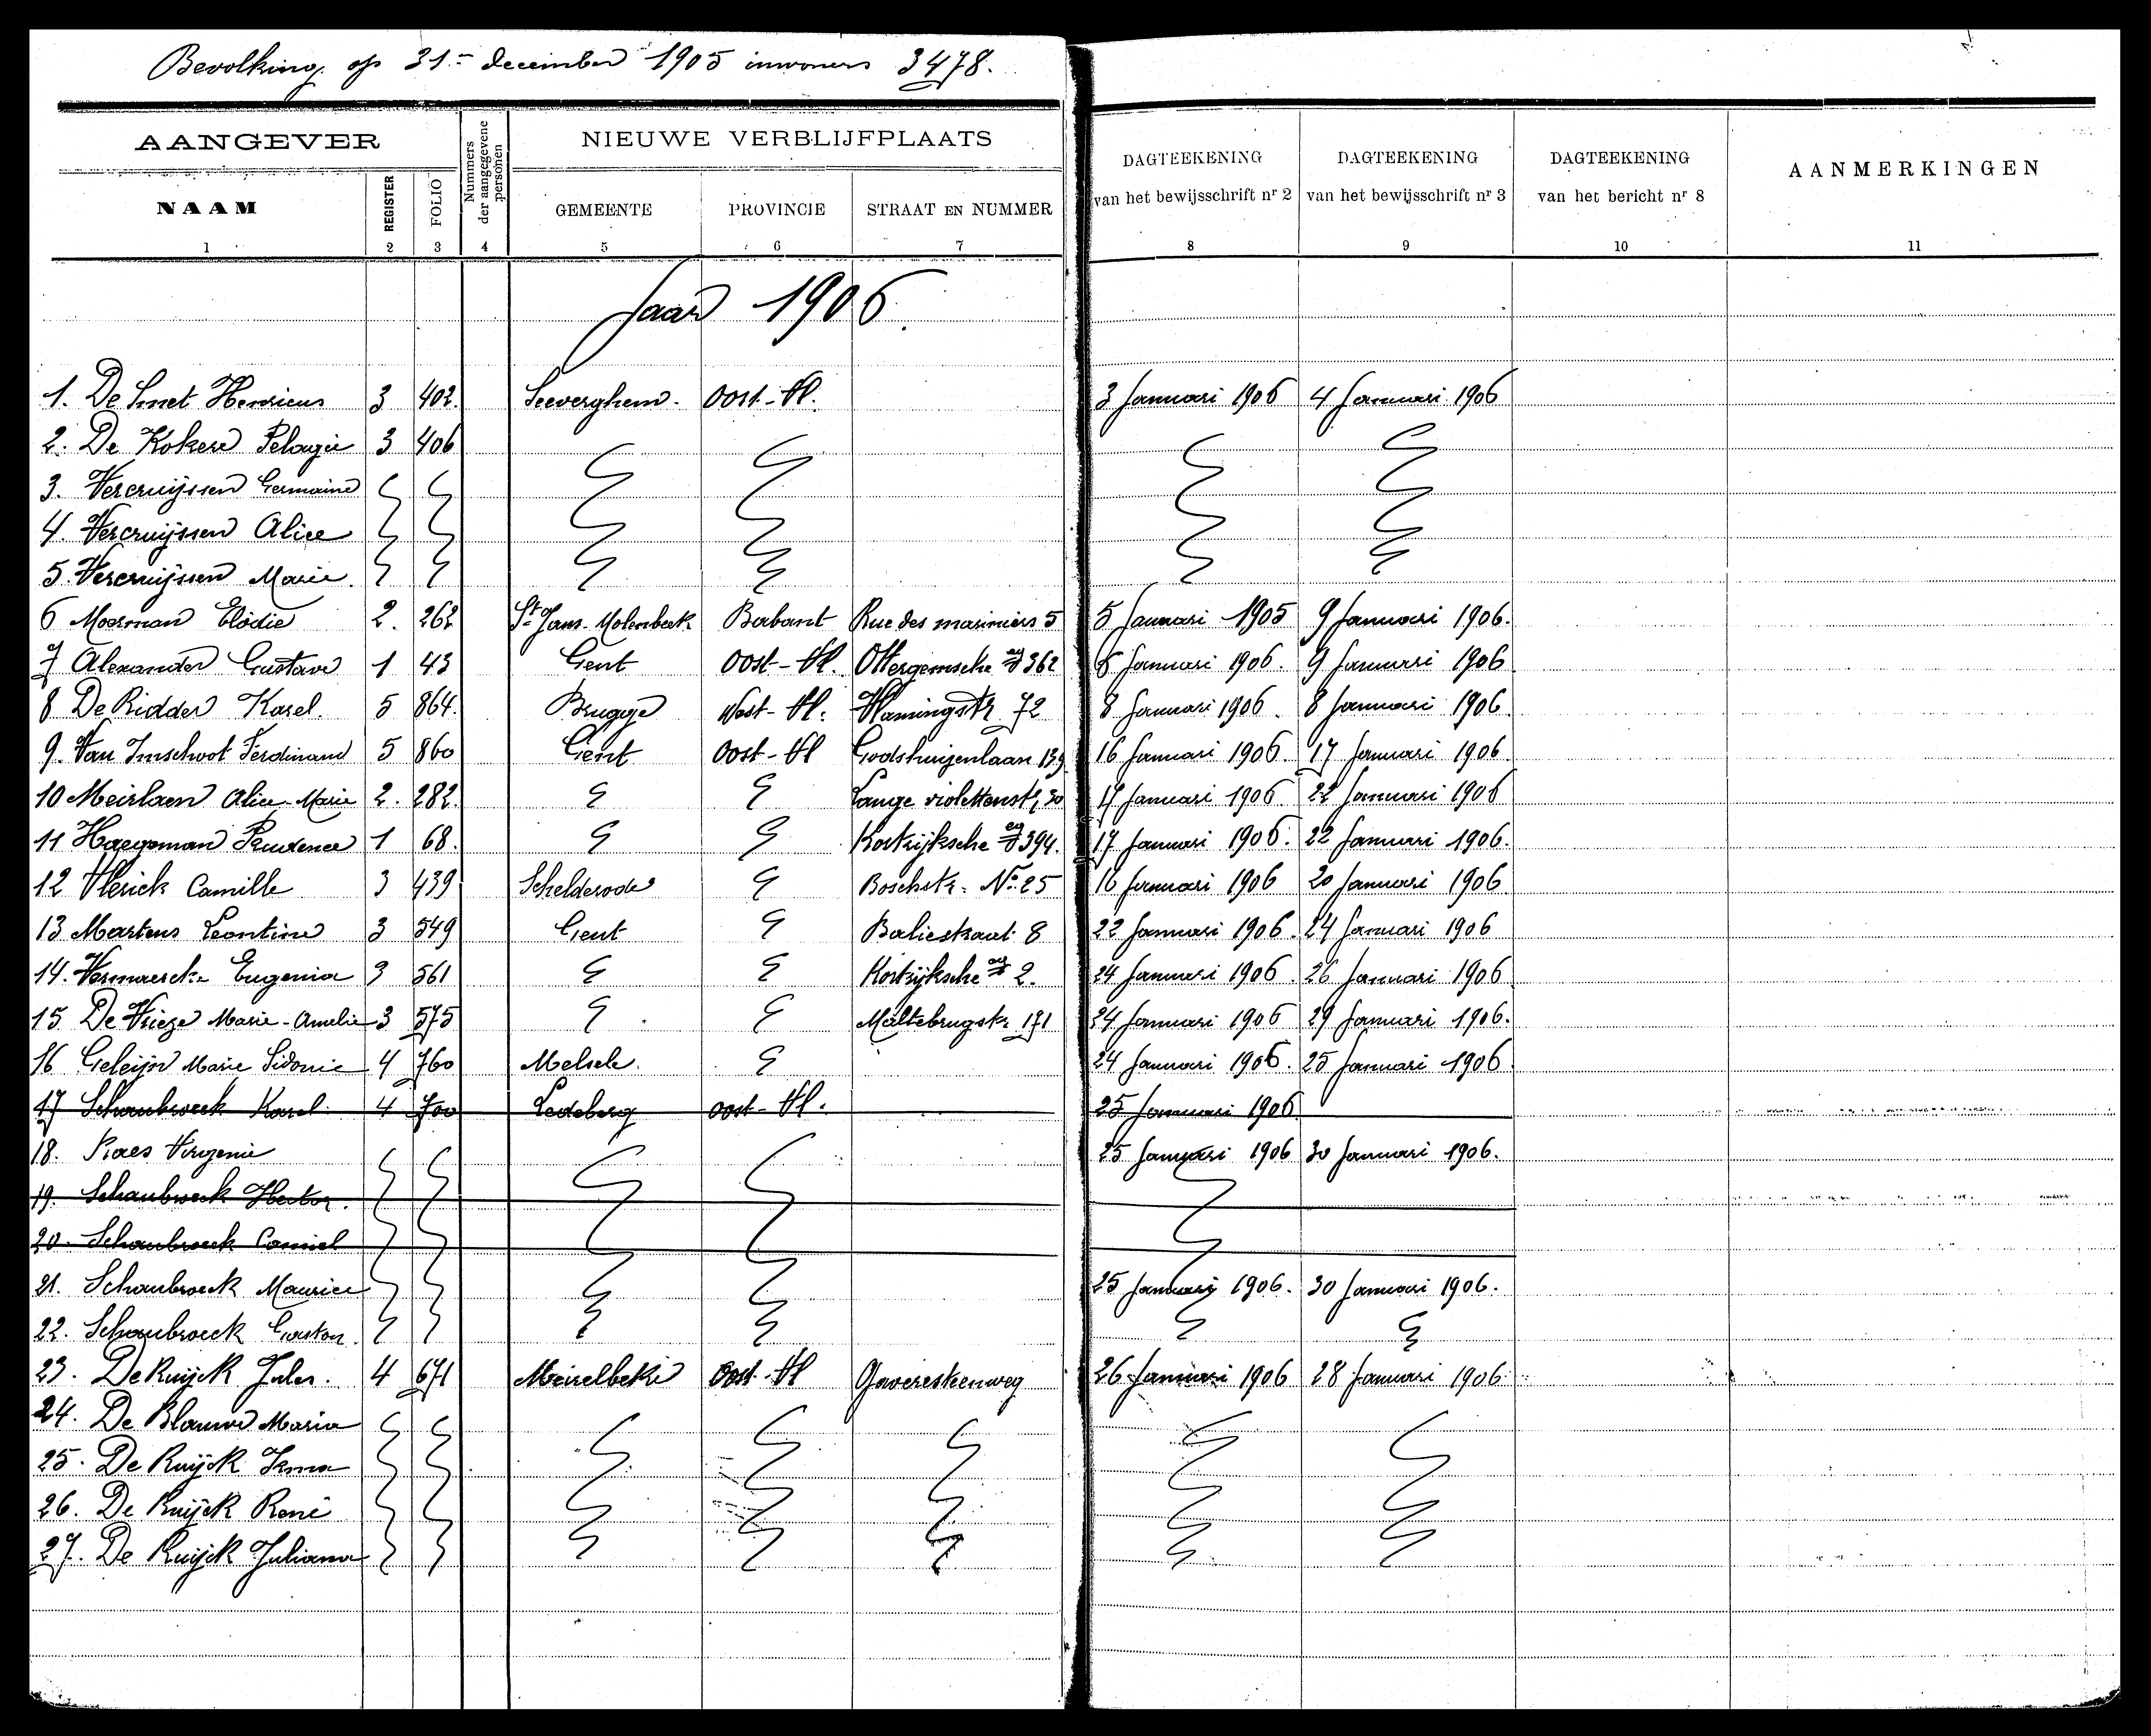 Bevolking op 31= december 1905 inwoners 3478.
AANGEVER
Nummers der aangegevene personen
NIEUWE VERBLIJFPLAATS
DAGTEEKENING van het bewijsschrift nr 2
DAGTEEKENING van het bewijsschrift nr 3
DAGTEEKENING van het bericht nr 8
AANMERKINGEN
NAAM REGISTER FOLIO GEMEENTE PROVINCIE STRAAT EN NUMMER
1 2 3 4 5 6 7 8 9 10 11
Jaar 1906.
1. De Smet Henricus 3 402. Seeverghem. Oost-Vl. 3 Januari 1906 4 Januari 1906
2. De Kokere Pelagie 3 406
3. Vercruijssen Germaine
4. Vercruijssen Alice
5. Vercruijssen Marie.
6 Moerman Elodie 2. 262 St Jans-Molenbeek Brabant Rue des mariniers 5 5 Januari 1905 9 Januari 1906.
7 Alexander Gustave 1 43 Gent Oost-Vl. Ottergemsche 362 6 Januari 1906. 9 Januari 1906
8 De Ridder Karel. 5 864. Brugge West-Vl. Vlamingstr 72 8 Januari 1906. 8 Januari 1906.
9. Van Imschoot Ferdinand 5 860 Gent Oost-Vl Godshuizenlaan 139 16 Januari 1906. 17 Januari 1906.
10 Meirlaen Alice-Marie 2. 282. Lange violettenstr, 30 17 Januari 1906 22 Januari 1906
11 Haegeman Prudence 1 68. Kortrijksche 394. 17 Januari 1906. 22 Januari 1906.
12 Vlerick Camille 3 439 Schelderode Boschstr. No 25 16 Januari 1906 20 Januari 1906
13 Martens Leontine 3 549 Gent Baliestraat 8 22 Januari 1906. 24 Januari 1906
14. Eugenia 3 561 Kortrijksche 2. 24 Januari 1906. 26 Januari 1906
15 De Vrieze Marie-Amelie 3 575 Maltebrugstr 171 24 Januari 1906 29 Januari 1906.
16 Geleijn Marie Sidonie 4 760 Melsele. 24 Januari 1906. 25 Januari 1906
17 Schaubroeck Karel. 4 700 Ledeberg oost-Vl. 25 Januari 1906
18. Raes Virgenie 25 Januari 1906 30 Januari 1906.
19. Schaubroeck Hector.
20. Schaubroeck Camiel
21. Schaubroeck Maurice 25 Januarij 1906. 30 Januari 1906.
22. Schaubroeck Gaston.
23. De Ruijck Jules. 4 671 Meirelbeke Oost-Vl Gaveresteenweg 26 Januari 1906 28 Januari 1906
24. De Blauwe Maria
25. De Ruijck Irma
26. De Ruijck René
27. De Ruijck Juliana